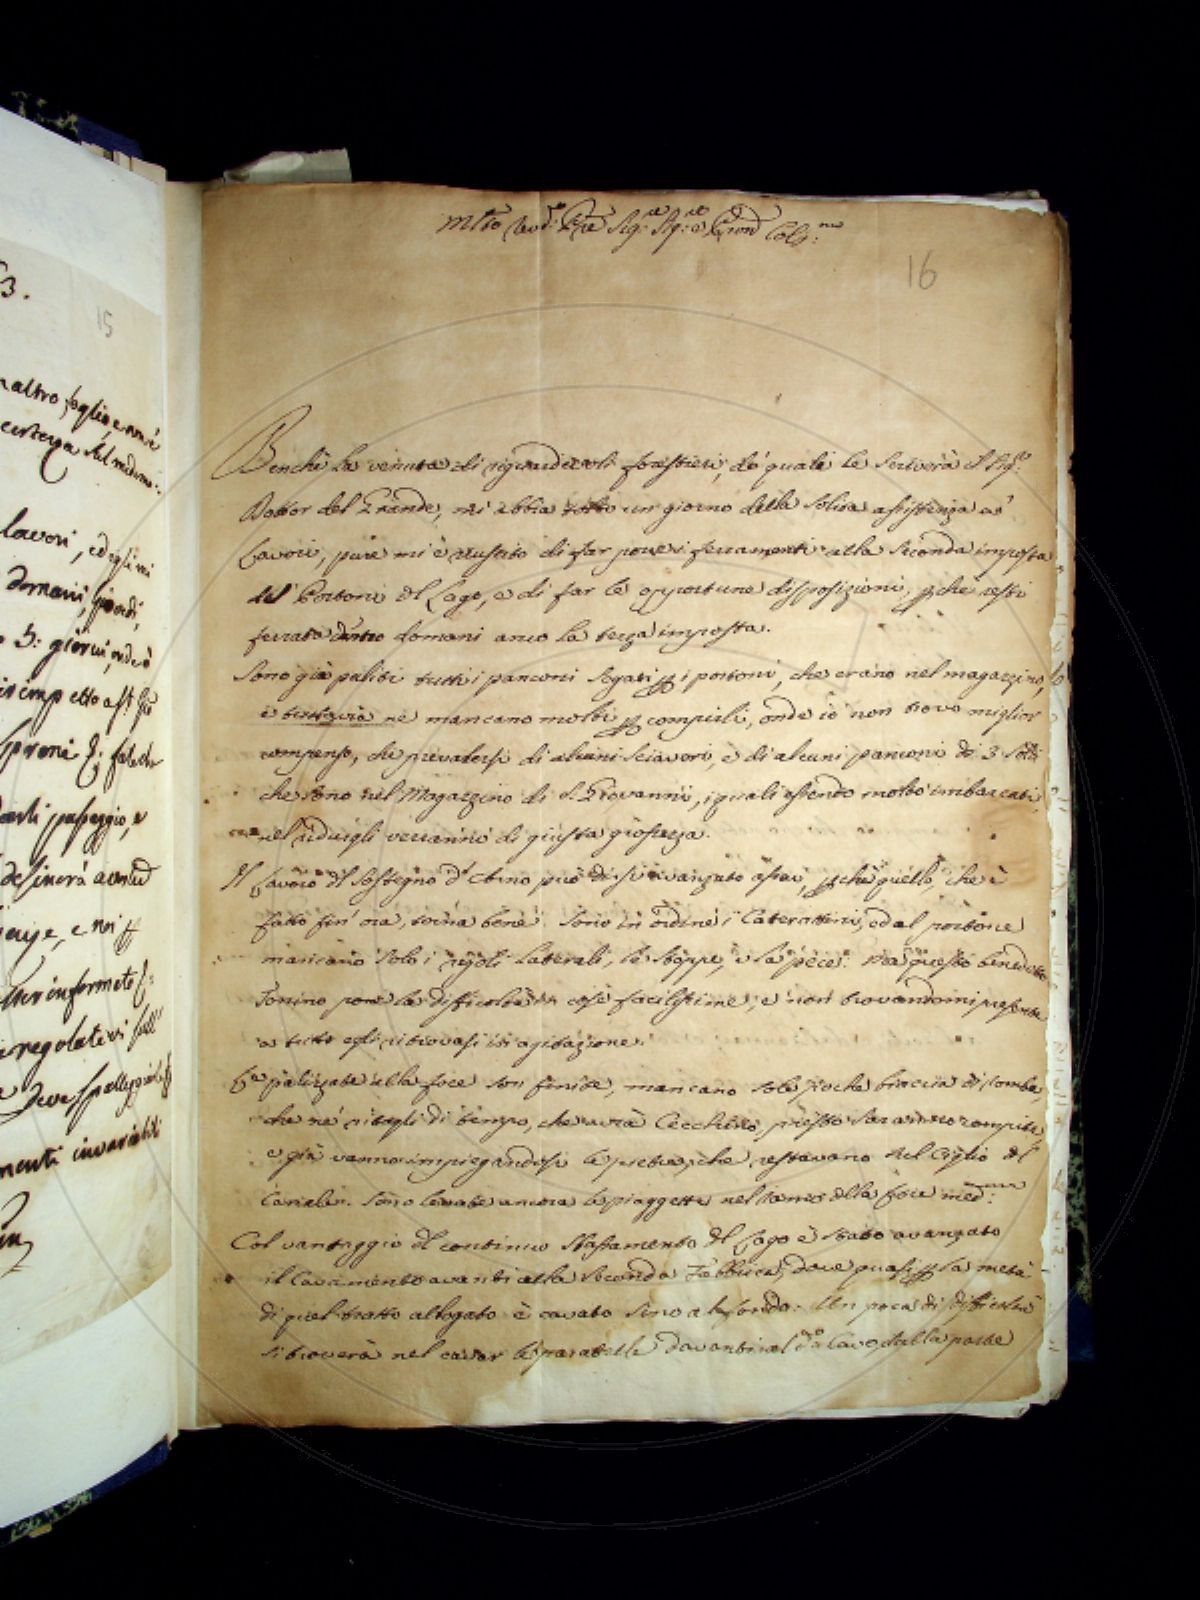 16
Benchè la venuta di riguardevoli forestieri, de' quali le scriverà il Sig.e
Dottor del Grande, mi abbia tolto un giorno della solita assistenza a'
Lavori, pure mi è riuscito di far porre i ferramenti alla seconda imposta
del Portone del Lago, e di far le opportune disposizioni, perche resti
ferrata dentro domani anco la terza imposta.
Sono già puliti tutti i panconi segati per i portoni, che erano nel magazzino,
e tuttavia ne mancano molti per compirli, onde io non trovo miglior
compenso, che prevalersi di alcuni sciavori, e di alcuni panconi di 3 soldi
che sono nel Magazzino di S. Giovanni, i quali essendo molto imbarcati,
nel ridurgli verranno di giusta grossezza.
Il Lavoro del Sostegno d' può dirsi avanzato assai, perche quello, che è
fatto fin' ora, torna bene. Sono in ordine i Caterattini, ed al portone
mancano solo i regoli laterali, le stoppe, e la pece: ma questo benedetto
Tonino pone la difficoltà in cose facilissime, e non trovandomi presente
a tutto egli ritrovasi in agitazione.
Le palizzate alla foce son finite, mancano sole poche braccia di tomba,
che ne' ritagli di tempo, che avrà Cecchino, presto saranno compite,
e già vanno impiegandosi le pietre, che restavano sul Ciglio del
Canale. Sono levate ancora le piaggette nel tronco della foce med.ma
Col vantaggio del continuo sbassamento del Lago è stato avanzato
il Cavamento avanti alla seconda Fabbrica, dove quasi per la metà
di quel tratto allogato è cavato sino al fondo: Un poca di difficoltà
si troverà nel cavar le paratelle davanti al d.o Cavo dalla parte
15
3.
altro foglio, e non è
certezza del medesimo.
lavori, ed egli mi
domani,
5: giorni, onde
passeggio, e
e noi
informato
regolarvi sull'
invariabili